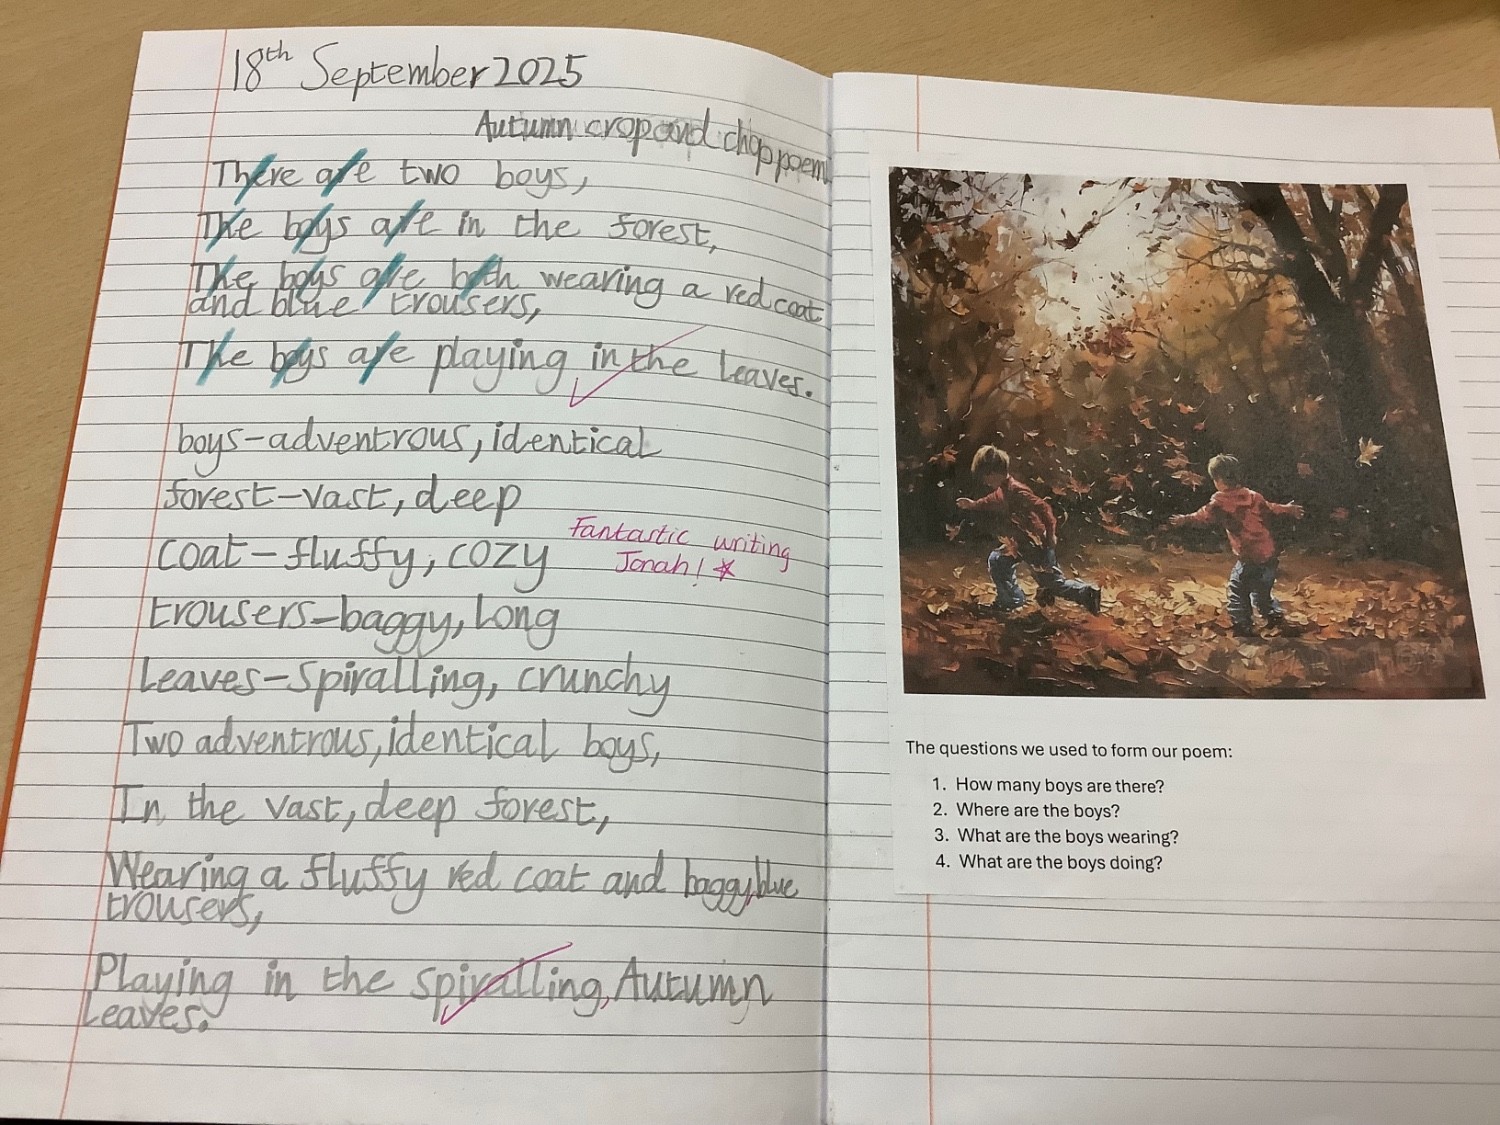 18th September 2025
Autumn crop and chop poem
There are two boys,
The boys are in the forest,
The boys are both wearing a red coat
and blue trousers,
The boys are playing in the leaves.
boys-adventrous, identical
forest-vast, deep
coat-fluffy, cozy
Fantastic writing
Jonah!
trousers-baggy, long
leaves-spiralling, crunchy
Two adventrous, identical boys,
In the vast, deep forest,
Wearing a fluffy red coat and baggy, blue
trousers,
Playing in the spiralling, Autumn
leaves.
The questions we used to form our poem:
1. How many boys are there?
2. Where are the boys?
3. What are the boys wearing?
4. What are the boys doing?